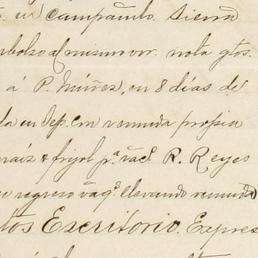 en campamto. Sierra
mbolso al mismo vor. nota gtos.
á P. Núñez, en 8 días de
da en dep. con remuda propia
maíz & frijol pa. vaq. R. Reyes
su regreso vaqo. llevando remuda
tos Escritorio. Expres